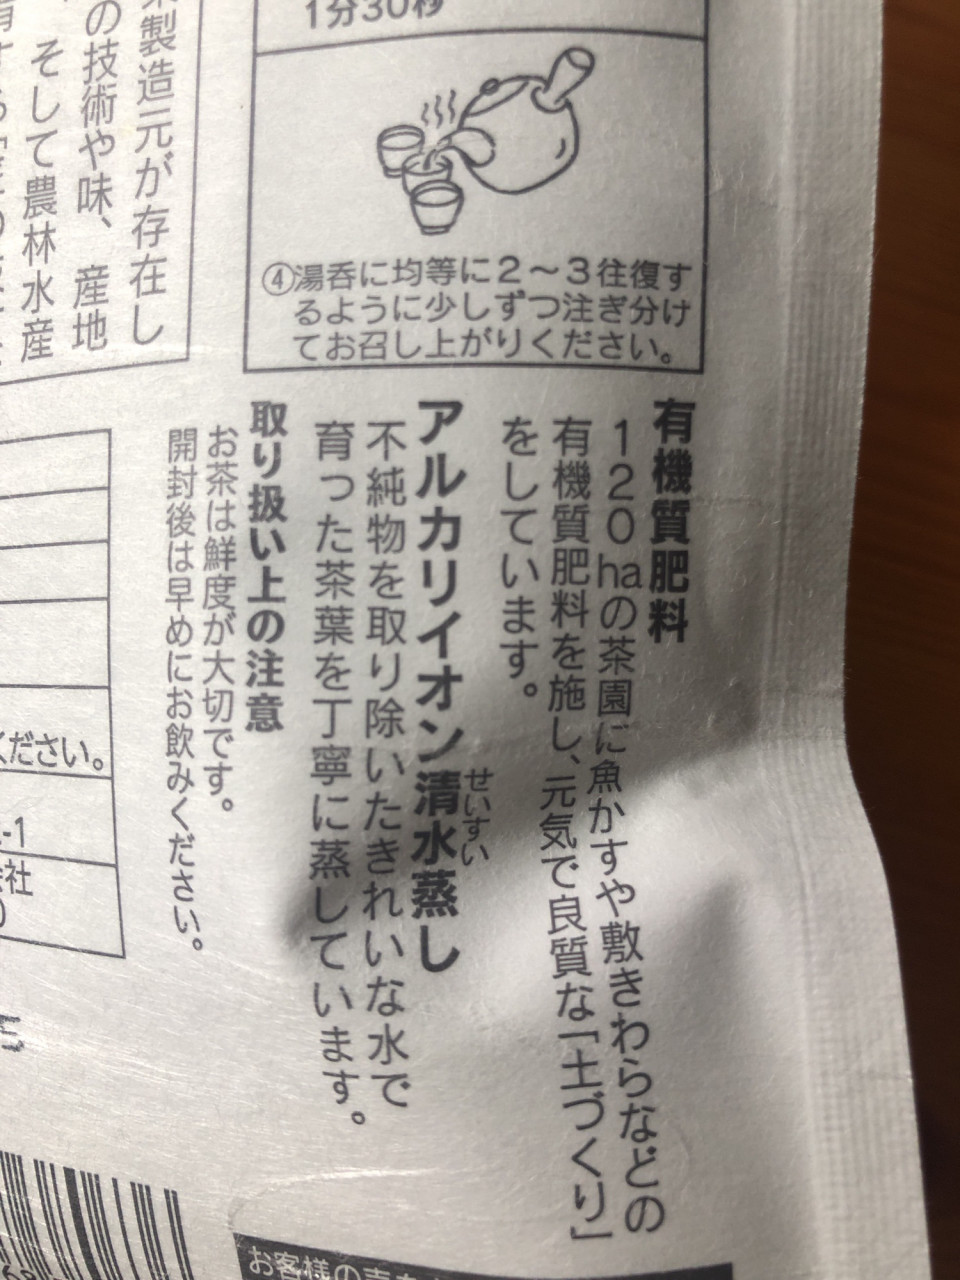 1分30秒
④湯呑に均等に2〜3往復す
るように少しずつ注ぎ分け
てお召し上がりください。
製造元が存在し
の技術や味、産地
そして農林水産
有機質肥料
120haの茶園に魚かすや敷きわらなどの
有機質肥料を施し、元気で良質な「土づくり」
をしています。
アルカリイオン清水蒸し
せいすい
不純物を取り除いたきれいな水で
育った茶葉を丁寧に蒸しています。
取り扱い上の注意
お茶は鮮度が大切です。
開封後は早めにお飲みください。
ください。
-1
社
お客様の声を